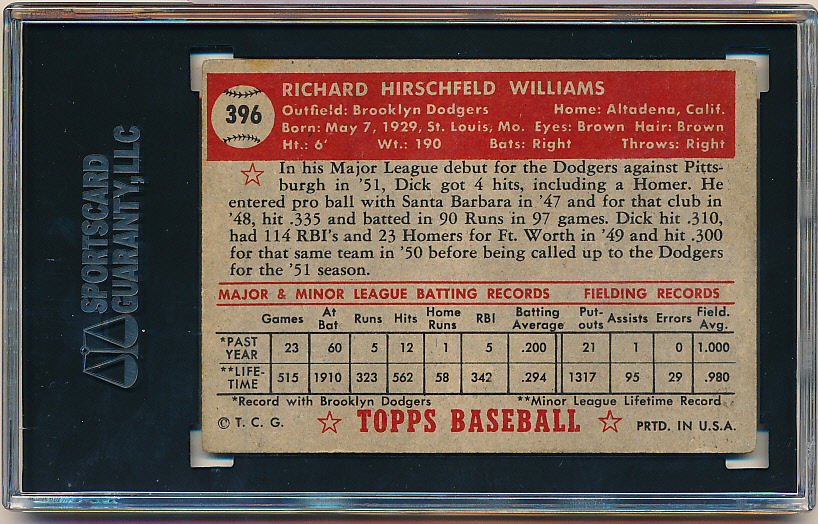 SPORTSCARD
GUARANTY, LLC
396
RICHARD HIRSCHFELD WILLIAMS
Outfield: Brooklyn Dodgers Home: Altadena, Calif.
Born: May 7, 1929, St. Louis, Mo. Eyes: Brown Hair: Brown
Ht.: 6' Wt.: 190 Bats: Right Throws: Right
In his Major League debut for the Dodgers against Pitts-
burgh in '51, Dick got 4 hits, including a Homer. He
entered pro ball with Santa Barbara in '47 and for that club in
'48, hit .335 and batted in 90 Runs in 97 games. Dick hit .310,
had 114 RBI's and 23 Homers for Ft. Worth in '49 and hit .300
for that same team in '50 before being called up to the Dodgers
for the '51 season.
MAJOR & MINOR LEAGUE BATTING RECORDS FIELDING RECORDS
Games At Bat Runs Hits Home Runs RBI Batting Average Put-outs Assists Errors Field. Avg.
*PAST YEAR 23 60 5 12 1 5 .200 21 1 0 1.000
**LIFE-TIME 515 1910 323 562 58 342 .294 1317 95 29 .980
*Record with Brooklyn Dodgers **Minor League Lifetime Record
© T. C. G. TOPPS BASEBALL PRTD. IN U.S.A.